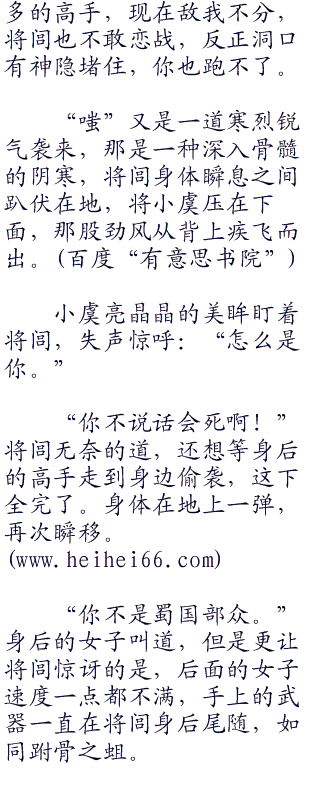 多的高手，现在敌我不分，
将闾也不敢恋战，反正洞口
有神隐堵住，你也跑不了。
“嗤”又是一道寒烈锐
气袭来，那是一种深入骨髓
的阴寒，将闾身体瞬息之间
趴伏在地，将小虞压在下
面，那股劲风从背上疾飞而
出。(百度“有意思书院”)
小虞亮晶晶的美眸盯着
将闾，失声惊呼：“怎么是
你。”
“你不说话会死啊！”
将闾无奈的道，还想等身后
的高手走到身边偷袭，这下
全完了。身体在地上一弹，
再次瞬移。
(www.heihei66.com)
“你不是蜀国部众。”
身后的女子叫道，但是更让
将闾惊讶的是，后面的女子
速度一点都不满，手上的武
器一直在将闾身后尾随，如
同跗骨之蛆。